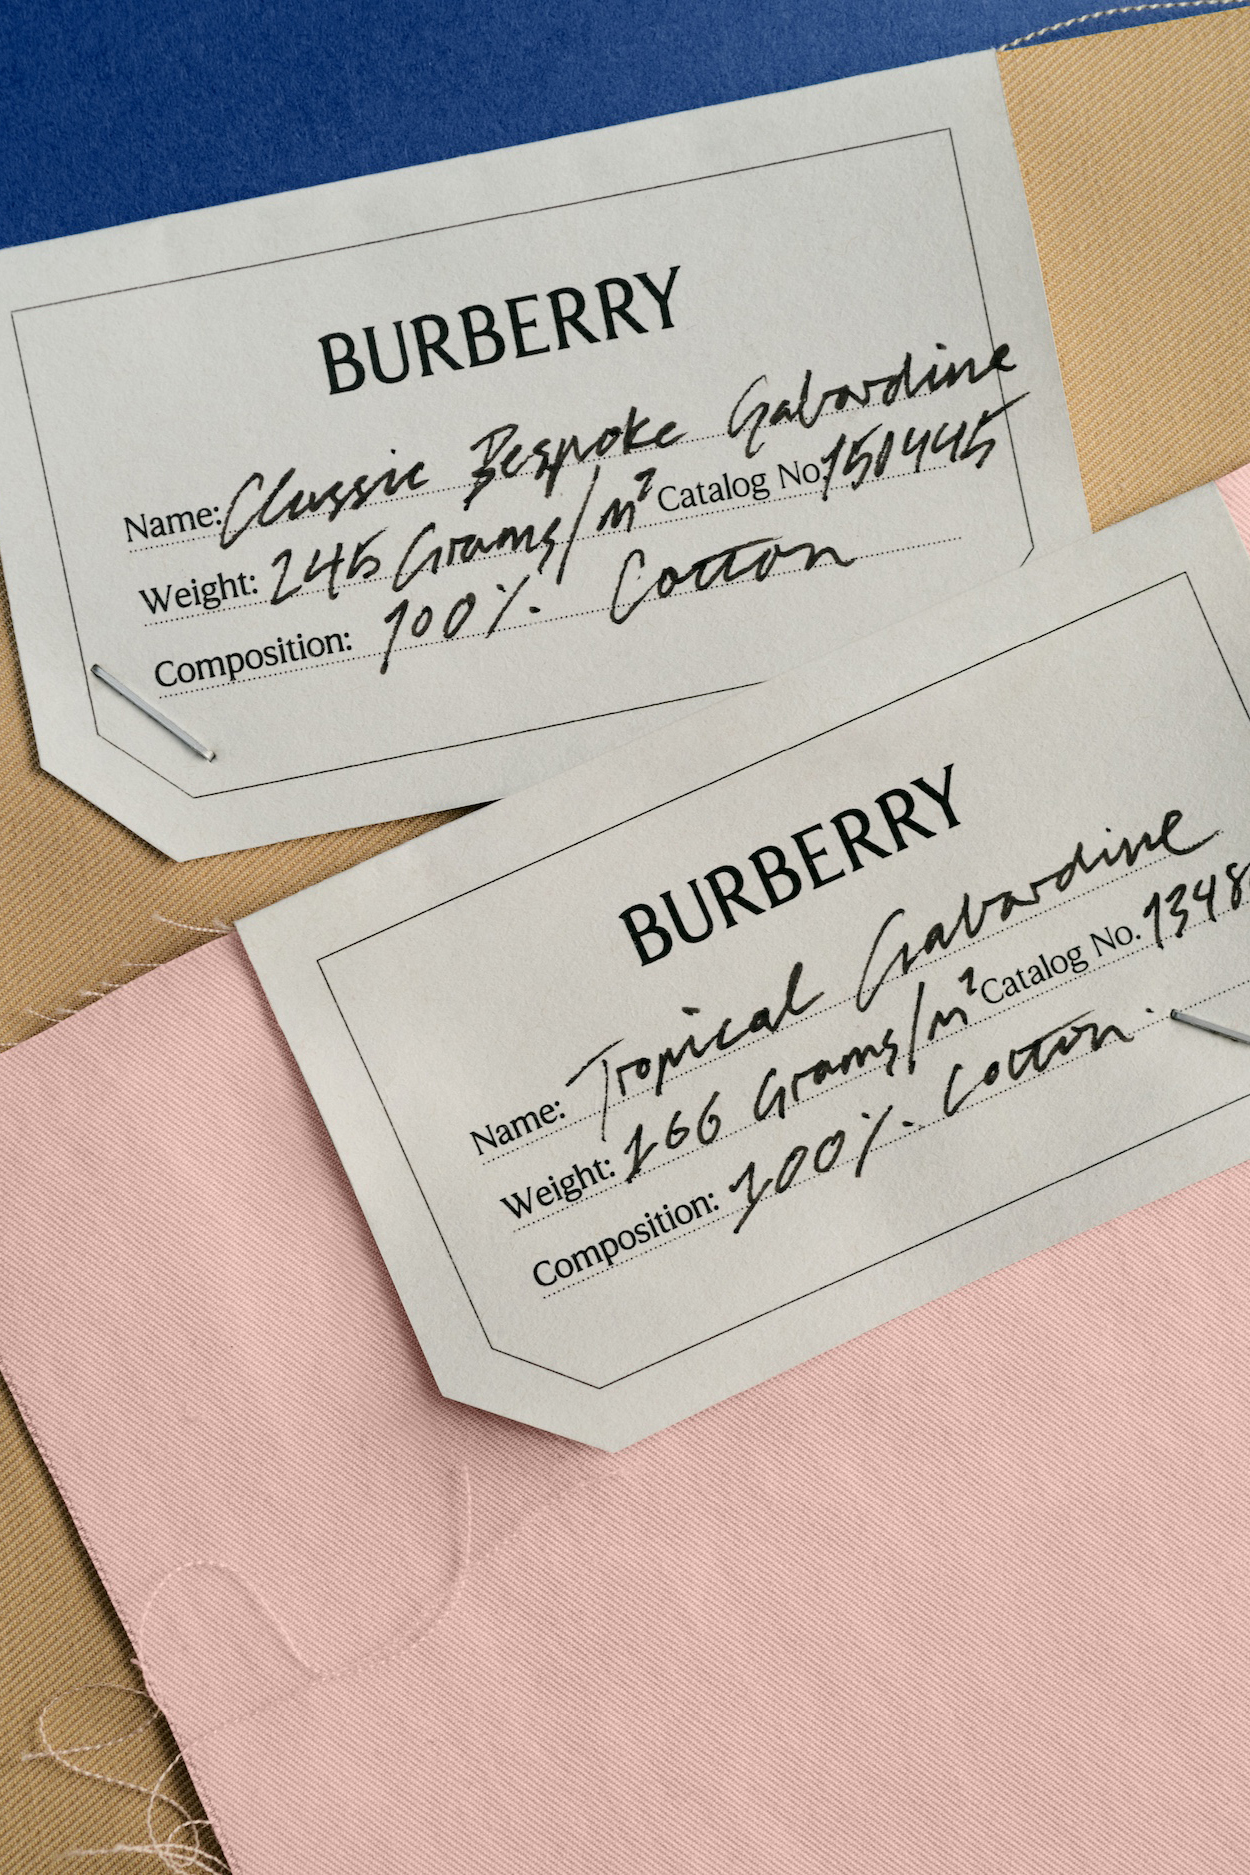 BURBERRY
Name: Classic Bespoke Gabardine
Weight: 245 Grams/m² Catalog No. 150445
Composition: 100% Cotton
BURBERRY
Name: Tropical Gabardine
Weight: 166 Grams/m² Catalog No. 1348
Composition: 100% Cotton.